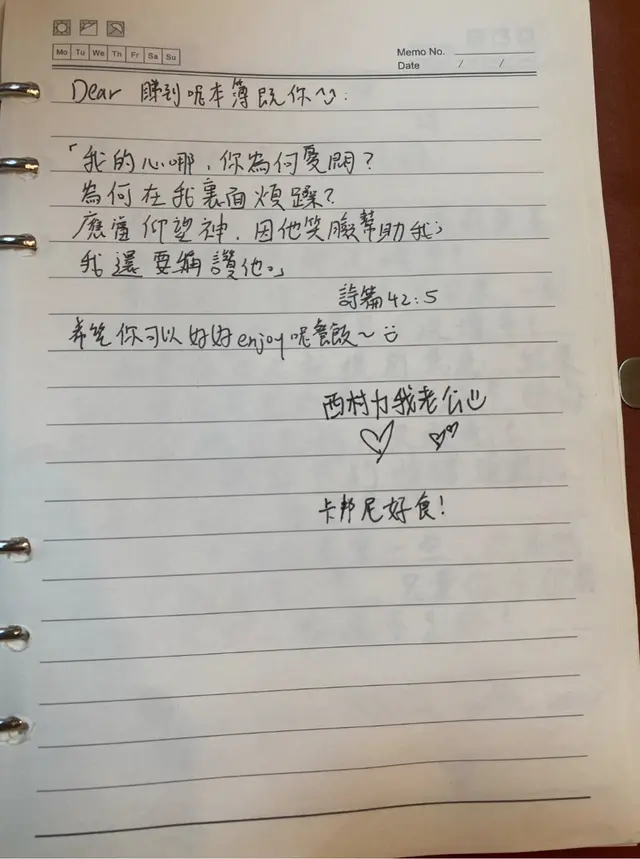 Mo Tu We Th Fr Sa Su
Memo No.
Date / /
Dear 睇到呢本簿既你:
「我的心哪，你為何憂悶？
為何在我裏面煩躁？
應當仰望神，因他笑臉幫助我；
我還要稱讚他。」
詩篇42:5
希望你可以好好enjoy呢餐飯～
西村力我老公
卡邦尼好食!